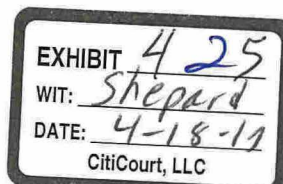 EXHIBIT 425
WIT: Shepard
DATE: 4-18-17
CitiCourt, LLC